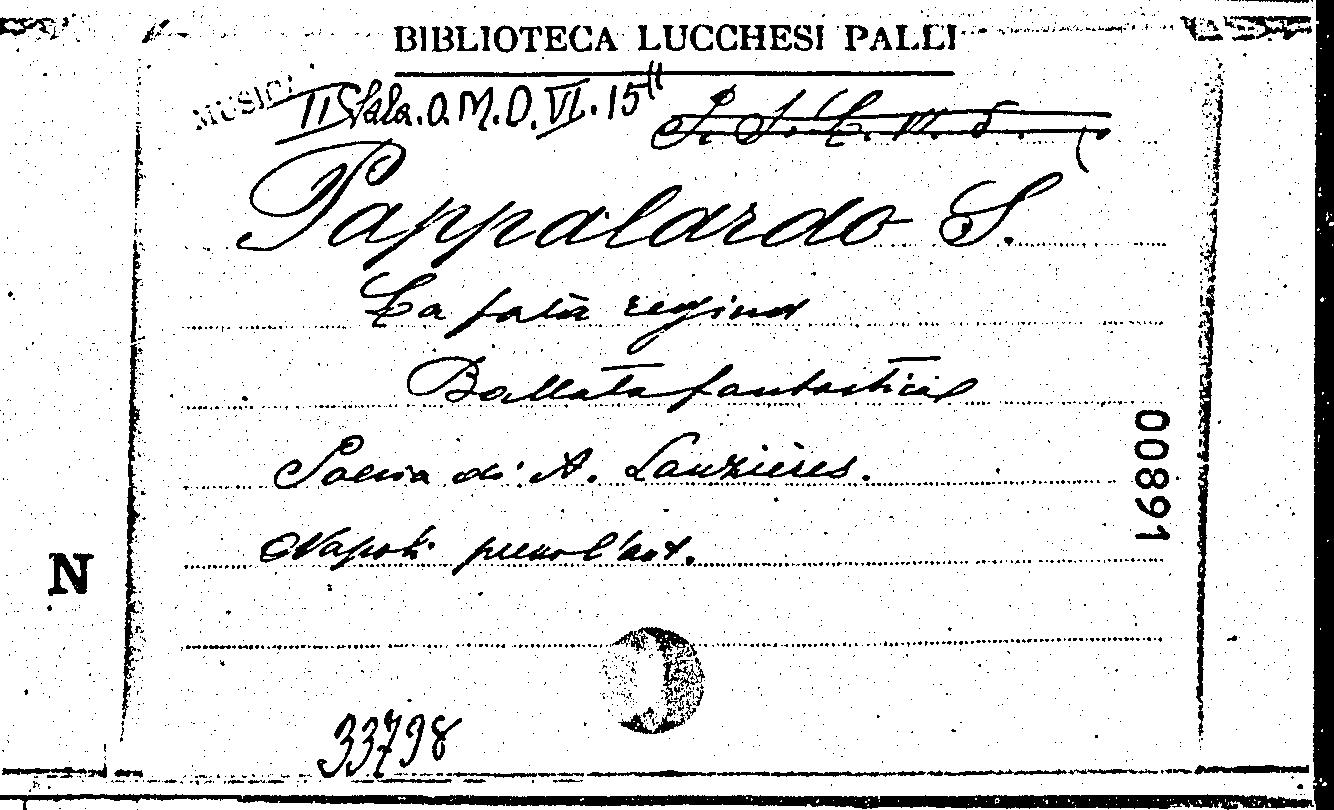 BIBLIOTECA LUCCHESI PALLI
MUSICA
II Sala. O. M. D. VI. 15
Pappalardo S.
La fata regina
Ballata fantastica
Poesia di A. Lauzières.
Napoli presso l'aut.
00891
N
33798